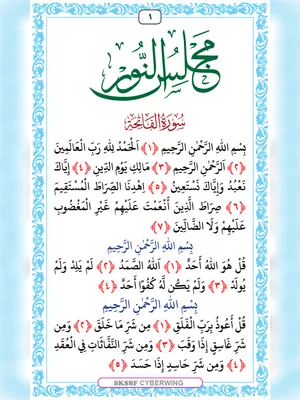 ١
مجلس النور
سُورَةُ الفَاتِحَة
بِسْمِ اللهِ الرَّحْمٰنِ الرَّحِيمِ ﴿١﴾ اَلْحَمْدُ لِلّٰهِ رَبِّ الْعَالَمِينَ
﴿٢﴾ اَلرَّحْمٰنِ الرَّحِيمِ ﴿٣﴾ مَالِكِ يَوْمِ الدِّينِ ﴿٤﴾ إِيَّاكَ
نَعْبُدُ وَإِيَّاكَ نَسْتَعِينُ ﴿٥﴾ اِهْدِنَا الصِّرَاطَ الْمُسْتَقِيمَ
﴿٦﴾ صِرَاطَ الَّذِينَ أَنْعَمْتَ عَلَيْهِمْ غَيْرِ الْمَغْضُوبِ
عَلَيْهِمْ وَلَا الضَّالِّينَ ﴿٧﴾
بِسْمِ اللهِ الرَّحْمٰنِ الرَّحِيمِ
قُلْ هُوَ اللهُ أَحَدٌ ﴿١﴾ اَللهُ الصَّمَدُ ﴿٢﴾ لَمْ يَلِدْ وَلَمْ
يُولَدْ ﴿٣﴾ وَلَمْ يَكُن لَّهُ كُفُوًا أَحَدٌ ﴿٤﴾
بِسْمِ اللهِ الرَّحْمٰنِ الرَّحِيمِ
قُلْ أَعُوذُ بِرَبِّ الْفَلَقِ ﴿١﴾ مِن شَرِّ مَا خَلَقَ ﴿٢﴾ وَمِن
شَرِّ غَاسِقٍ إِذَا وَقَبَ ﴿٣﴾ وَمِن شَرِّ النَّفَّاثَاتِ فِي الْعُقَدِ
﴿٤﴾ وَمِن شَرِّ حَاسِدٍ إِذَا حَسَدَ ﴿٥﴾
SKSSF CYBERWING